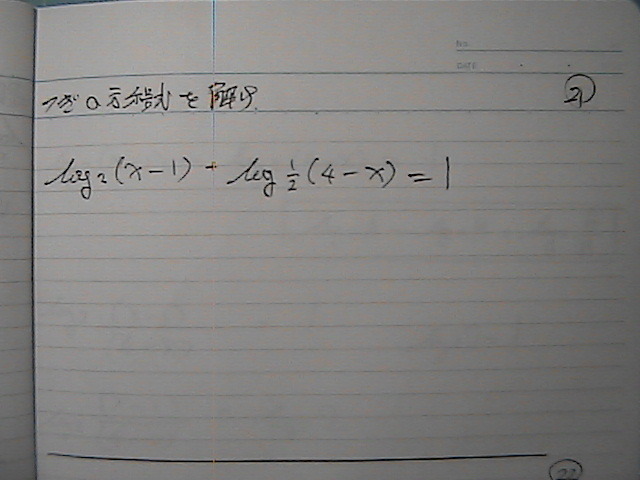 NO.
DATE
つぎの方程式を解け. ㉑
log₂(x-1) - log½(4-x) = 1